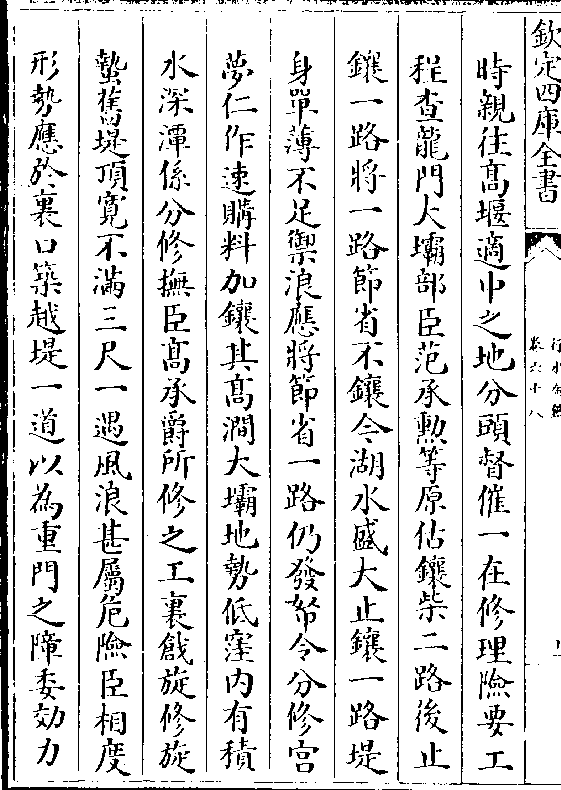 欽定四庫全書
卷六十八
時親往髙堰適中之地分頭督催一在修理險要工
程查龍門大壩部臣范承勲等原估鑲柴二路後止
鑲一路將一路節省不鑲今湖水盛大止鑲一路堤
身單薄不足禦浪應將節省一路仍發帑令分修宫
夢仁作速購料加鑲其髙澗大壩地勢低窪内有積
水深潭係分修撫臣髙承爵所修之工裏戧旋修旋
蟄舊堤頂寛不滿三尺一遇風浪甚屬危險臣相度
形勢應於裏口築越堤一道以為重門之障委効力